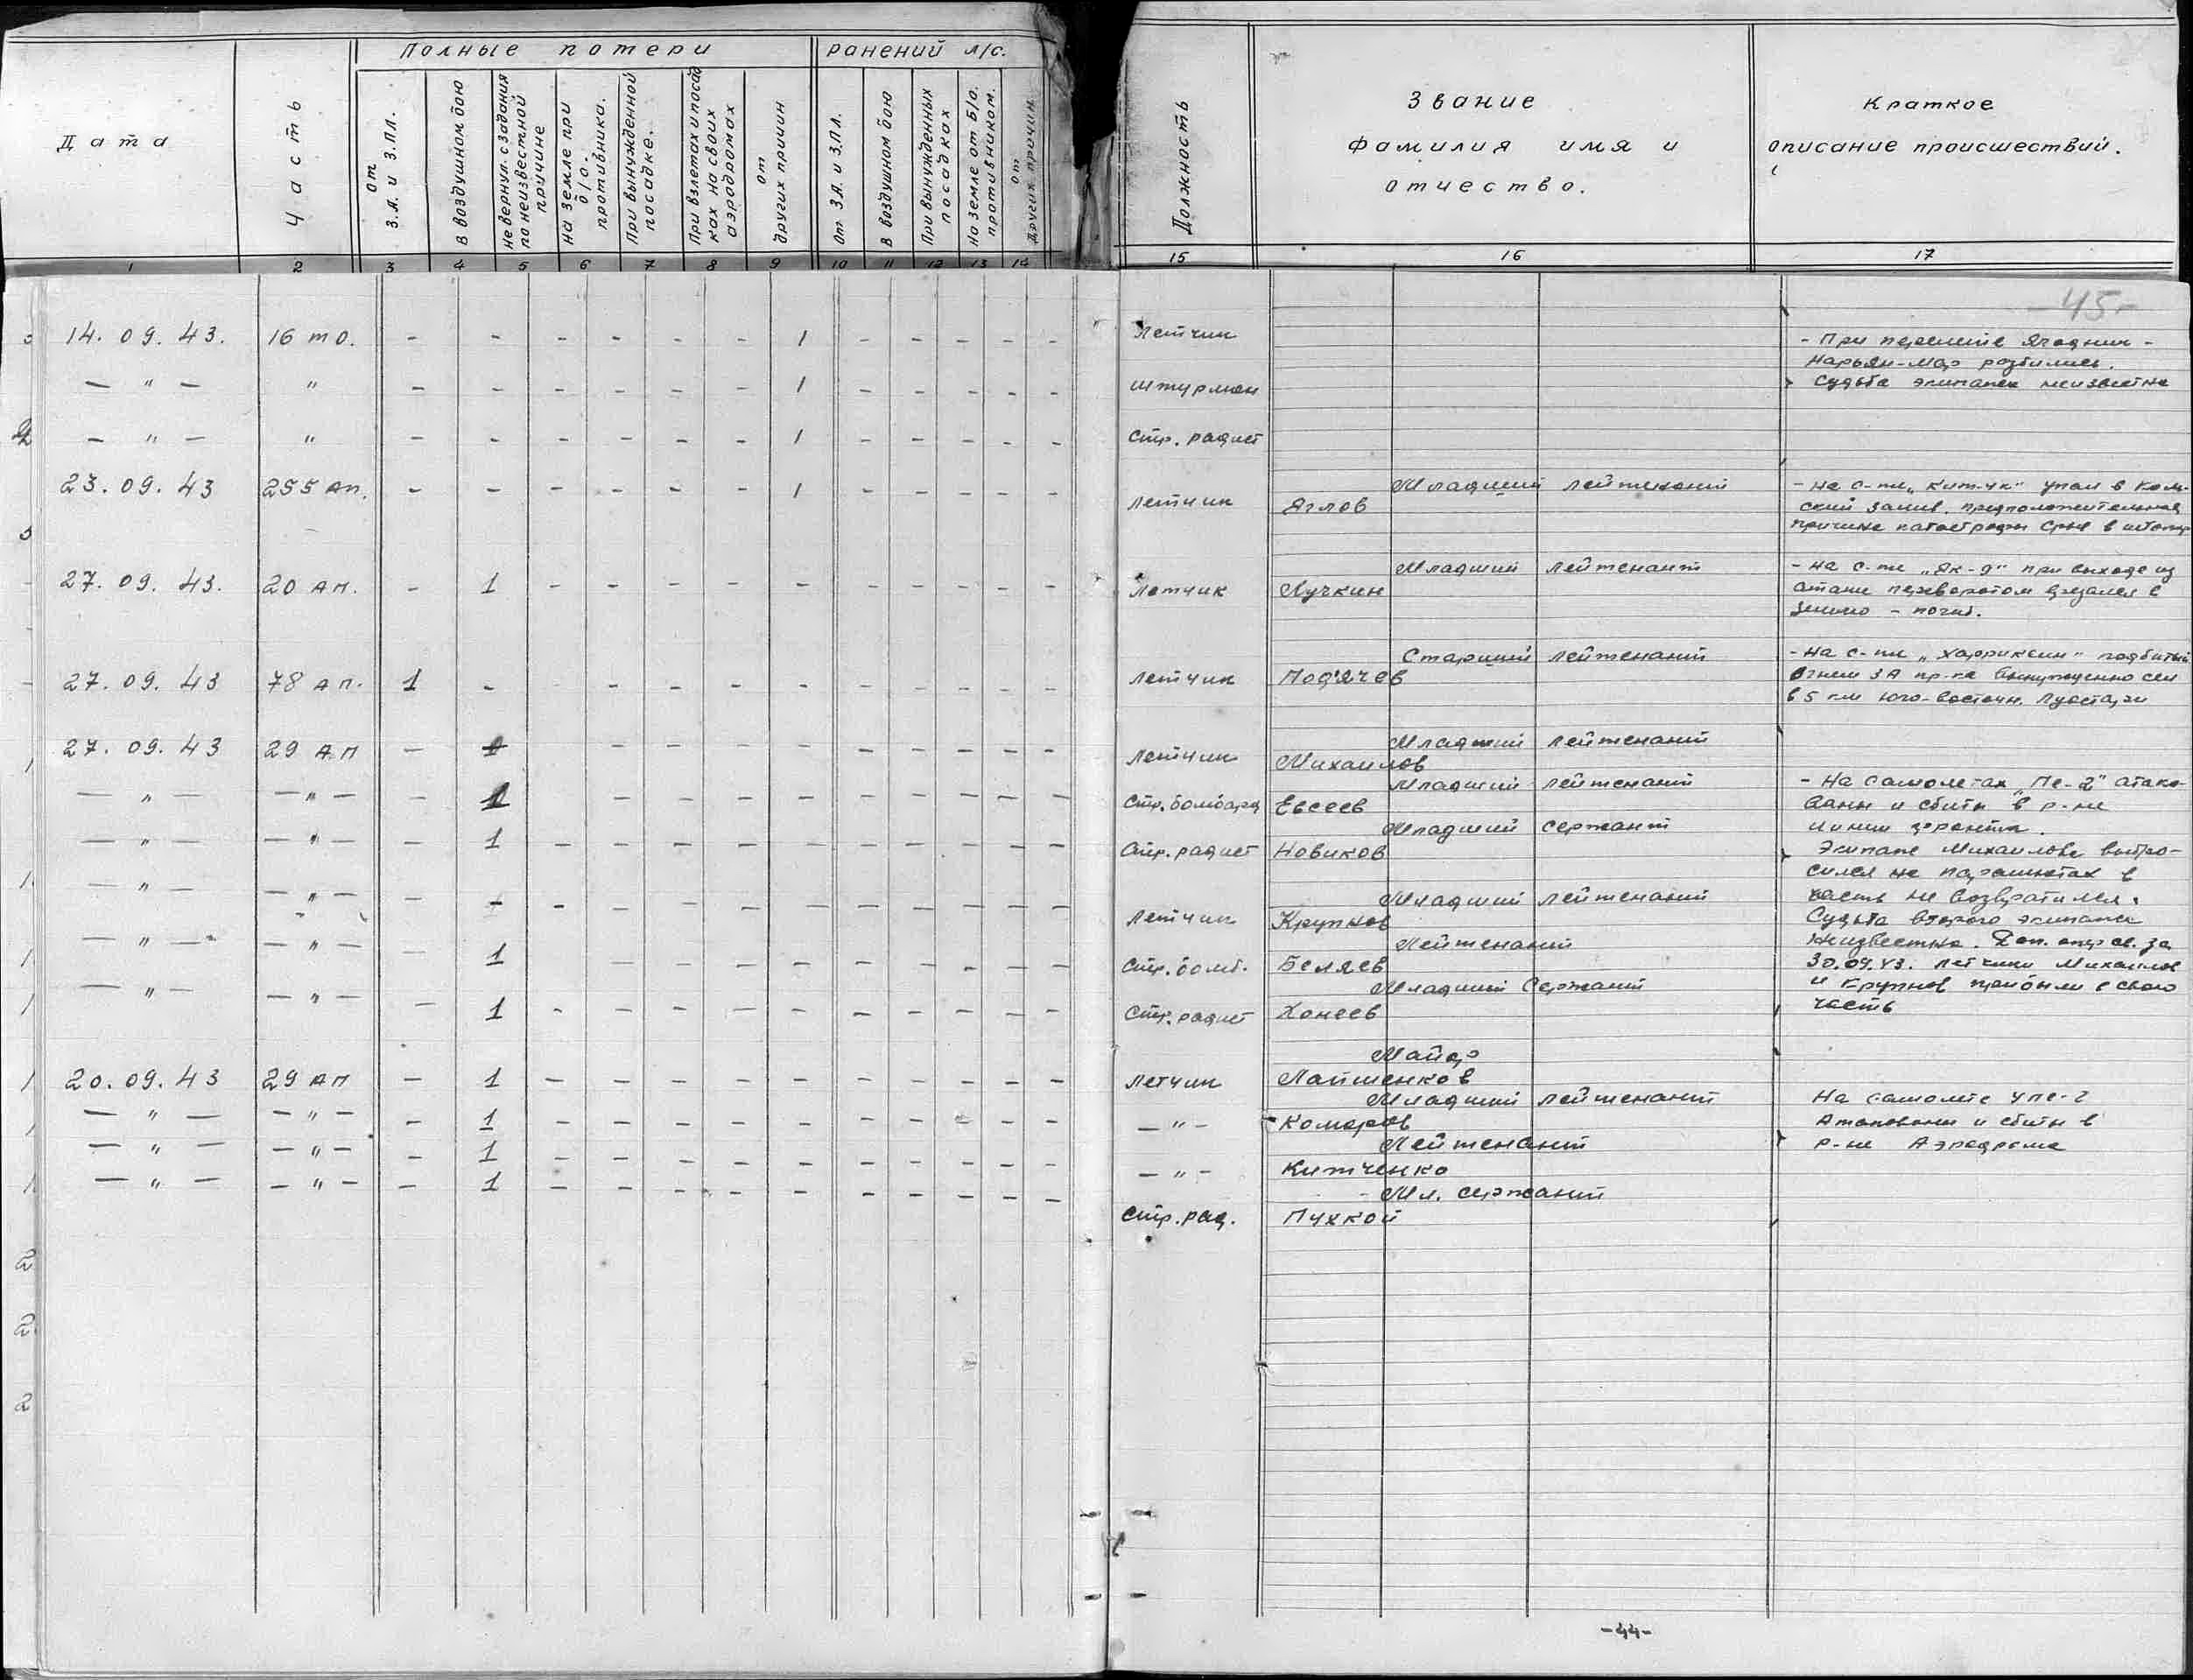 Полные потери
ранений л/с.
Дата
Часть
От З.А. и З.ПЛ.
В воздушном бою
Не вернул. с задания по неизвестной причине
На земле при б/о. противника.
При вынужденной посадке.
При взлетах и посадках на своих аэродромах
От других причин
От З.А. и З.ПЛ.
В воздушном бою
При вынужденных посадках
На земле от Б/о. противником.
От других причин
Должность
Звание
фамилия имя и
отчество.
Краткое
описание происшествий.
1 2 3 4 5 6 7 8 9 10 11 12 13 14 15 16 17
-45-
14. 09. 43. 16 то. - - - - - - 1 - - - - - Летчик - При перелете Ягодник -
Нарьян-Мар разбились.
— " — " - - - - - - 1 - - - - - Штурман Судьба экипажа неизвестна
— " — " - - - - - - 1 - - - - - Стр. радист
23. 09. 43 255 АП. - - - - - - 1 - - - - - Младший лейтенант - На с-те „Кит-чк" упал в Коль-
Летчик Яглов ский залив. предположительная
причина катастрофы срыв в штопор
27. 09. 43. 20 АП. - 1 - - - - - - - - - - Младший лейтенант - На с-те „Як-9" при выходе из
Летчик Лучкин атаки переворотом врезался в
землю - погиб.
27. 09. 43 78 АП. 1 - - - - - - - - - - - Старший лейтенант - На с-те „Харрикейн" подбитый
Летчик Под'ячев огнем ЗА пр-ка вынужденно сел
в 5 км юго-восточн. Луостари
27. 09. 43 29 АП - Младший лейтенант
Летчик Михаилов
— " — — " — - 1 Младший лейтенант - На самолетах „Пе-2" атако-
Стр. бомбард Евсеев ваны и сбиты в р-не
— " — — " — - 1 - - - - - - - - - - Младший сержант линии фронта.
Стр. радист Новиков Экипаж Михаилова выбро-
сился на парашютах в
— " — — " — - - Младший лейтенант часть не возвратился.
Летчик Крупнов Судьба второго экипажа
— " — — " — - 1 Лейтенант неизвестна. Доп. опер св. за
Стр. бомб. Беляев 30.09.43. летчики Михаилов
— " — — " — - 1 - - - - - - - - - - Младший Сержант и Крупнов прибыли в свою
Стр. радист Хонеев часть
Майор
20. 09. 43 29 АП - 1 - - - - - - - - - - Летчик Лапшенков
Младший лейтенант На самолете УПе-2
— " — — " — - 1 - - - - - - - - - - — " — Комаров Атакованы и сбиты в
Лейтенант р-не Аэродрома
— " — — " — - 1 - - - - - - - - - - — " — Китченко
— " — — " — - 1 - - - - - - - - - - Мл. сержант
Стр. рад. Пухкой
-44-